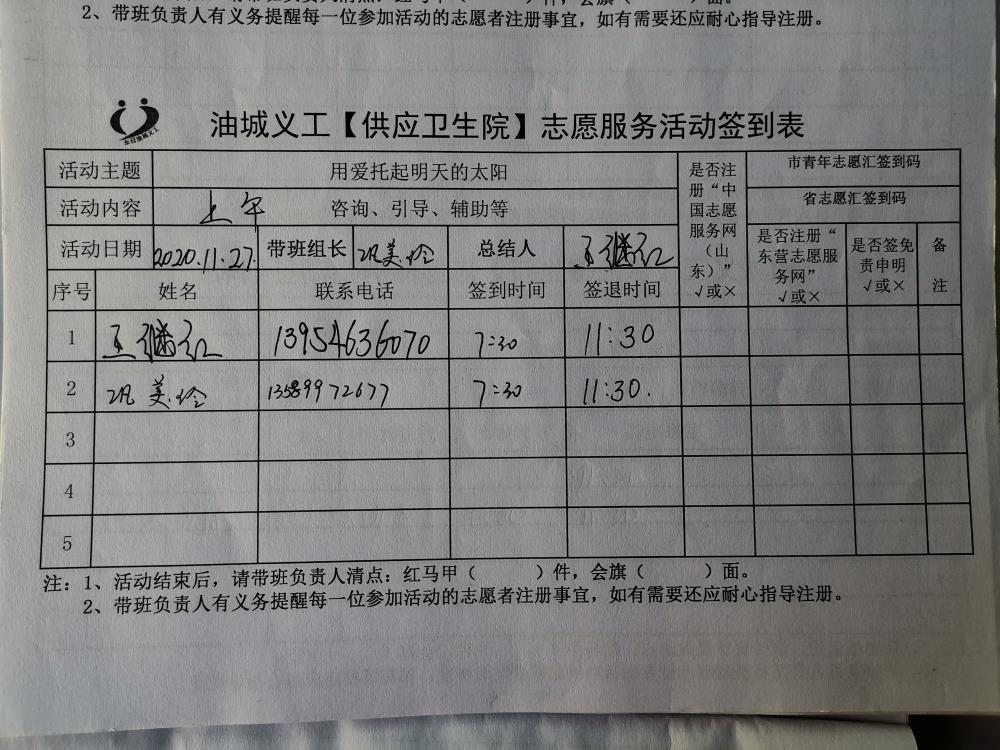 2、带班负责人有义务提醒每一位参加活动的志愿者注册事宜，如有需要还应耐心指导注册。
油城义工【供应卫生院】志愿服务活动签到表
活动主题 用爱托起明天的太阳 是否注册“中国志愿服务网（山东）”√或× 市青年志愿汇签到码
活动内容 上午 咨询、引导、辅助等 省志愿汇签到码
活动日期 2020.11.27. 带班组长 巩美玲 总结人 王继红 是否注册“东营志愿服务网”√或× 是否签免责申明√或× 备注
序号 姓名 联系电话 签到时间 签退时间
1 王继红 13954636070 7:30 11:30
2 巩美玲 13589972677 7:30 11:30.
3
4
5
注：1、活动结束后，请带班负责人清点：红马甲（ ）件，会旗（ ）面。
2、带班负责人有义务提醒每一位参加活动的志愿者注册事宜，如有需要还应耐心指导注册。